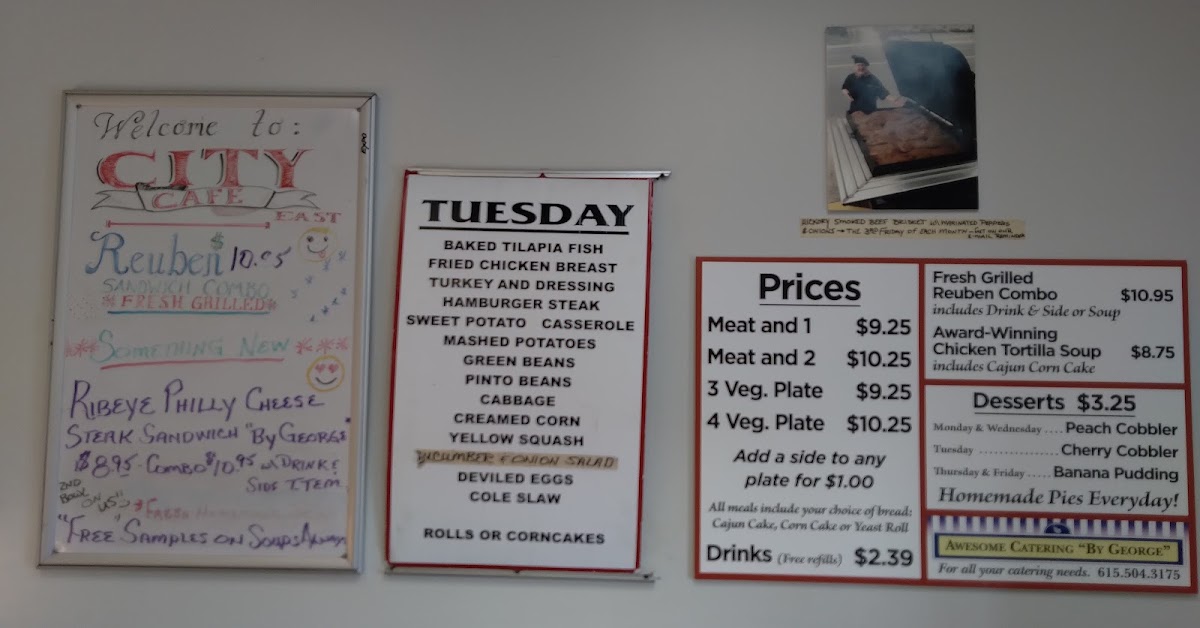 Welcome to:
CITY
CAFE
EAST
Reuben $10.95
SANDWICH COMBO
* FRESH GRILLED *
SOMETHING NEW
RIBEYE PHILLY CHEESE
STEAK SANDWICH "BY GEORGE"
$8.95 - COMBO $10.95 w/DRINK &
SIDE ITEM
2ND
BOWL
ON
US"
FRESH
"FREE SAMPLES ON SOUPS ALWAYS
TUESDAY
BAKED TILAPIA FISH
FRIED CHICKEN BREAST
TURKEY AND DRESSING
HAMBURGER STEAK
SWEET POTATO CASSEROLE
MASHED POTATOES
GREEN BEANS
PINTO BEANS
CABBAGE
CREAMED CORN
YELLOW SQUASH
CUCUMBER & ONION SALAD
DEVILED EGGS
COLE SLAW
ROLLS OR CORNCAKES
HICKORY SMOKED BEEF BRISKET W/MARINATED PEPPERS
& ONIONS → THE 3RD FRIDAY OF EACH MONTH - GET ON OUR
E-MAIL
Prices
Meat and 1 $9.25
Meat and 2 $10.25
3 Veg. Plate $9.25
4 Veg. Plate $10.25
Add a side to any
plate for $1.00
All meals include your choice of bread:
Cajun Cake, Corn Cake or Yeast Roll
Drinks (Free refills) $2.39
Fresh Grilled
Reuben Combo $10.95
includes Drink & Side or Soup
Award-Winning
Chicken Tortilla Soup $8.75
includes Cajun Corn Cake
Desserts $3.25
Monday & Wednesday .... Peach Cobbler
Tuesday .................. Cherry Cobbler
Thursday & Friday ..... Banana Pudding
Homemade Pies Everyday!
AWESOME CATERING "BY GEORGE"
For all your catering needs. 615.504.3175